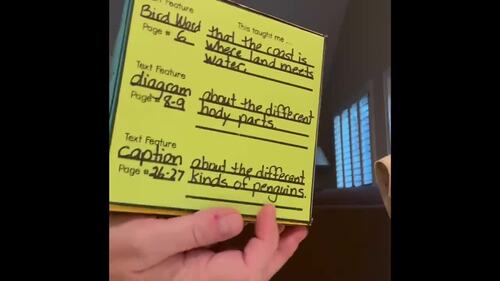 Text Feature
This taught me...
Bird Word
that the coast is
Page # 6
where land meets
water.
Text Feature
diagram
about the different
Page # 8-9
body parts.
Text Feature
caption
about the different
Page # 26-27
kinds of penguins.